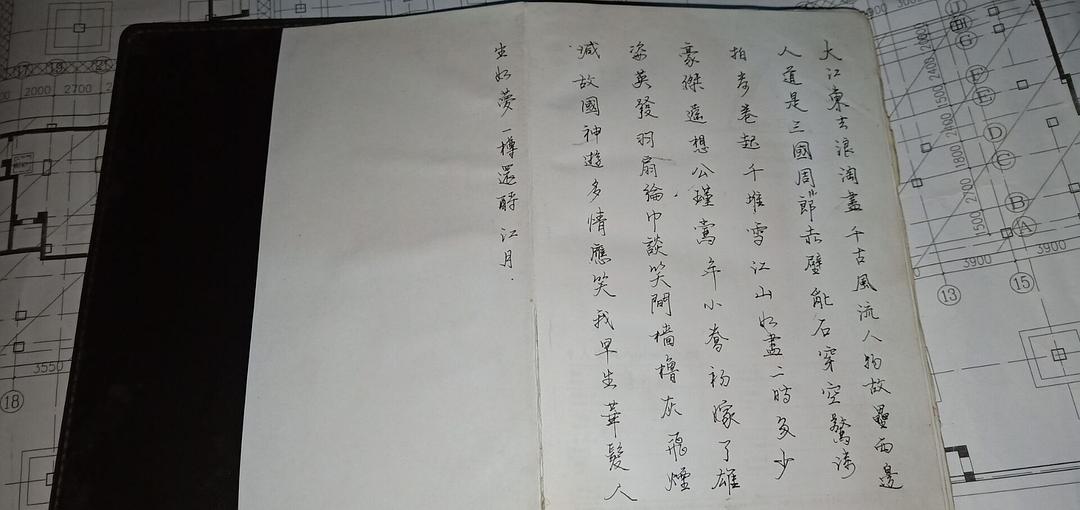 大江東去浪淘盡千古風流人物故壘西邊
人道是三國周郎赤壁亂石穿空驚濤
拍岸卷起千堆雪江山如畫一時多少
豪傑遙想公瑾當年小喬初嫁了雄
姿英發羽扇綸巾談笑間檣櫓灰飛煙
滅故國神遊多情應笑我早生華髮人
生如夢一樽還酹江月.
2000
2700
3550
18
3900
D
C
B
A
1500
2700
1800
1500
3900
3900
13
15